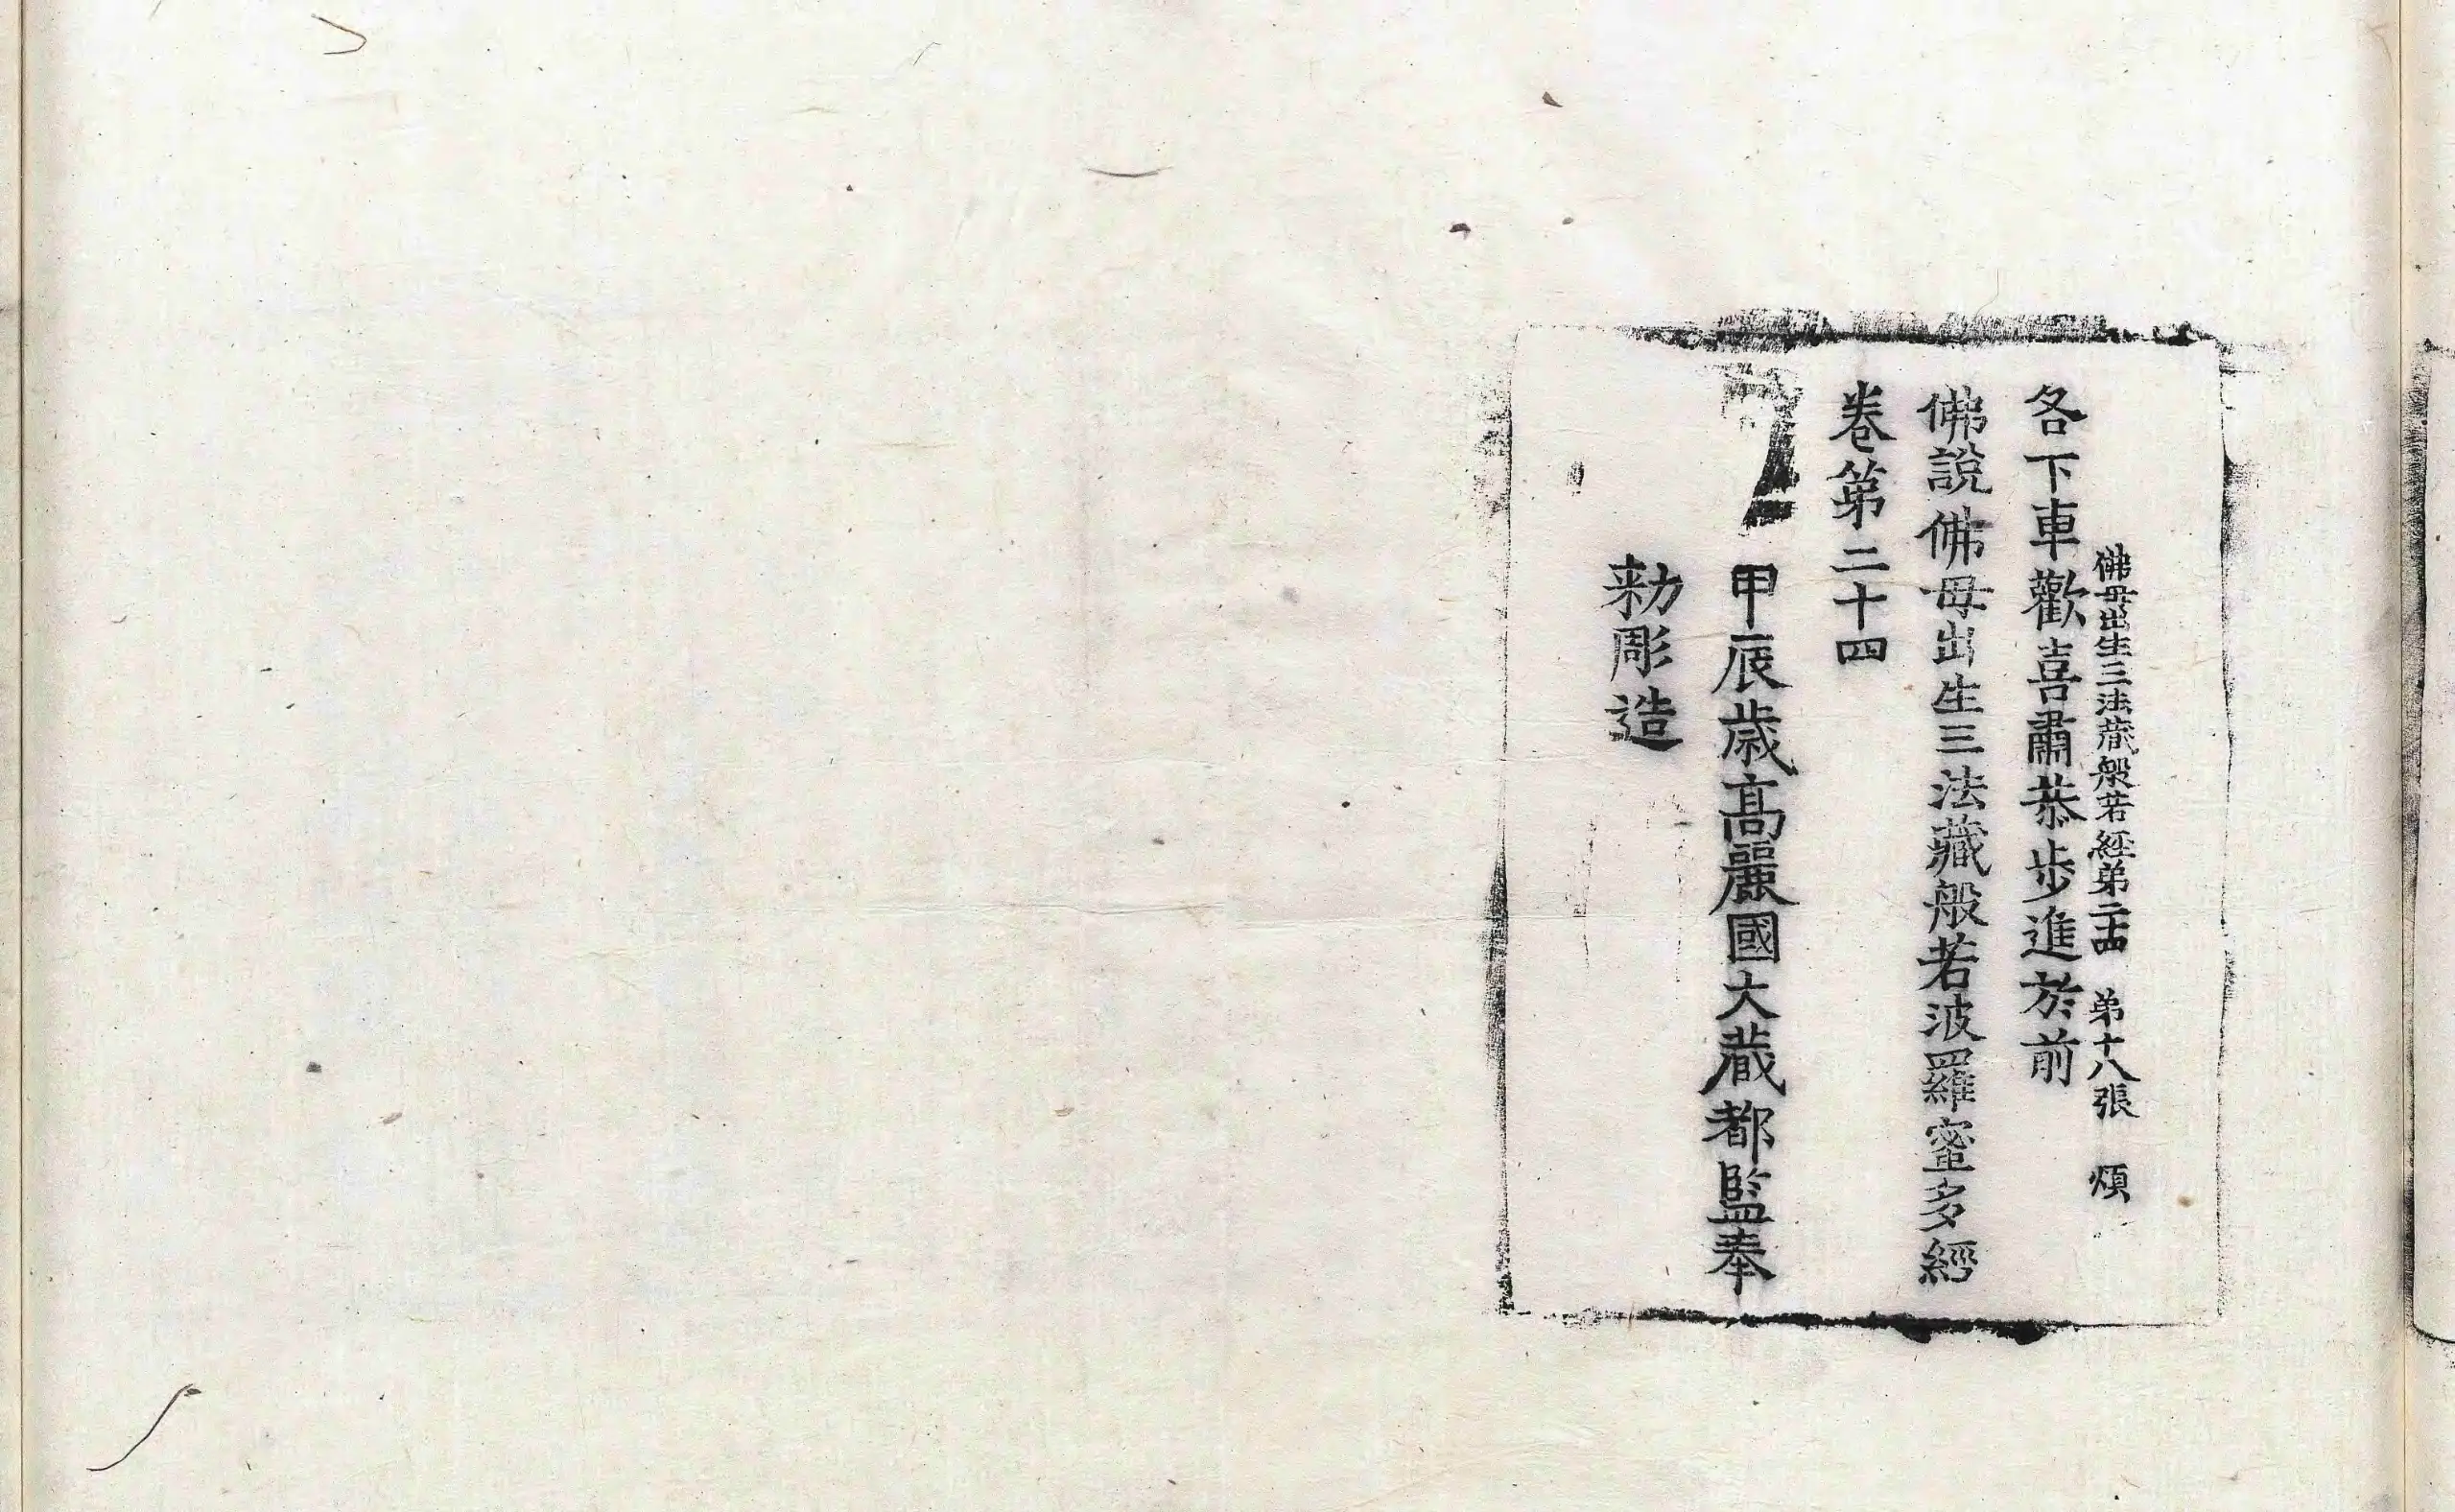 佛母出生三法蔵般若經第二十四 第十八張 煩
各下車歡喜肅恭步進於前
佛說佛母出生三法藏般若波羅蜜多經
卷第二十四
甲辰歳高麗國大蔵都監奉
勑彫造